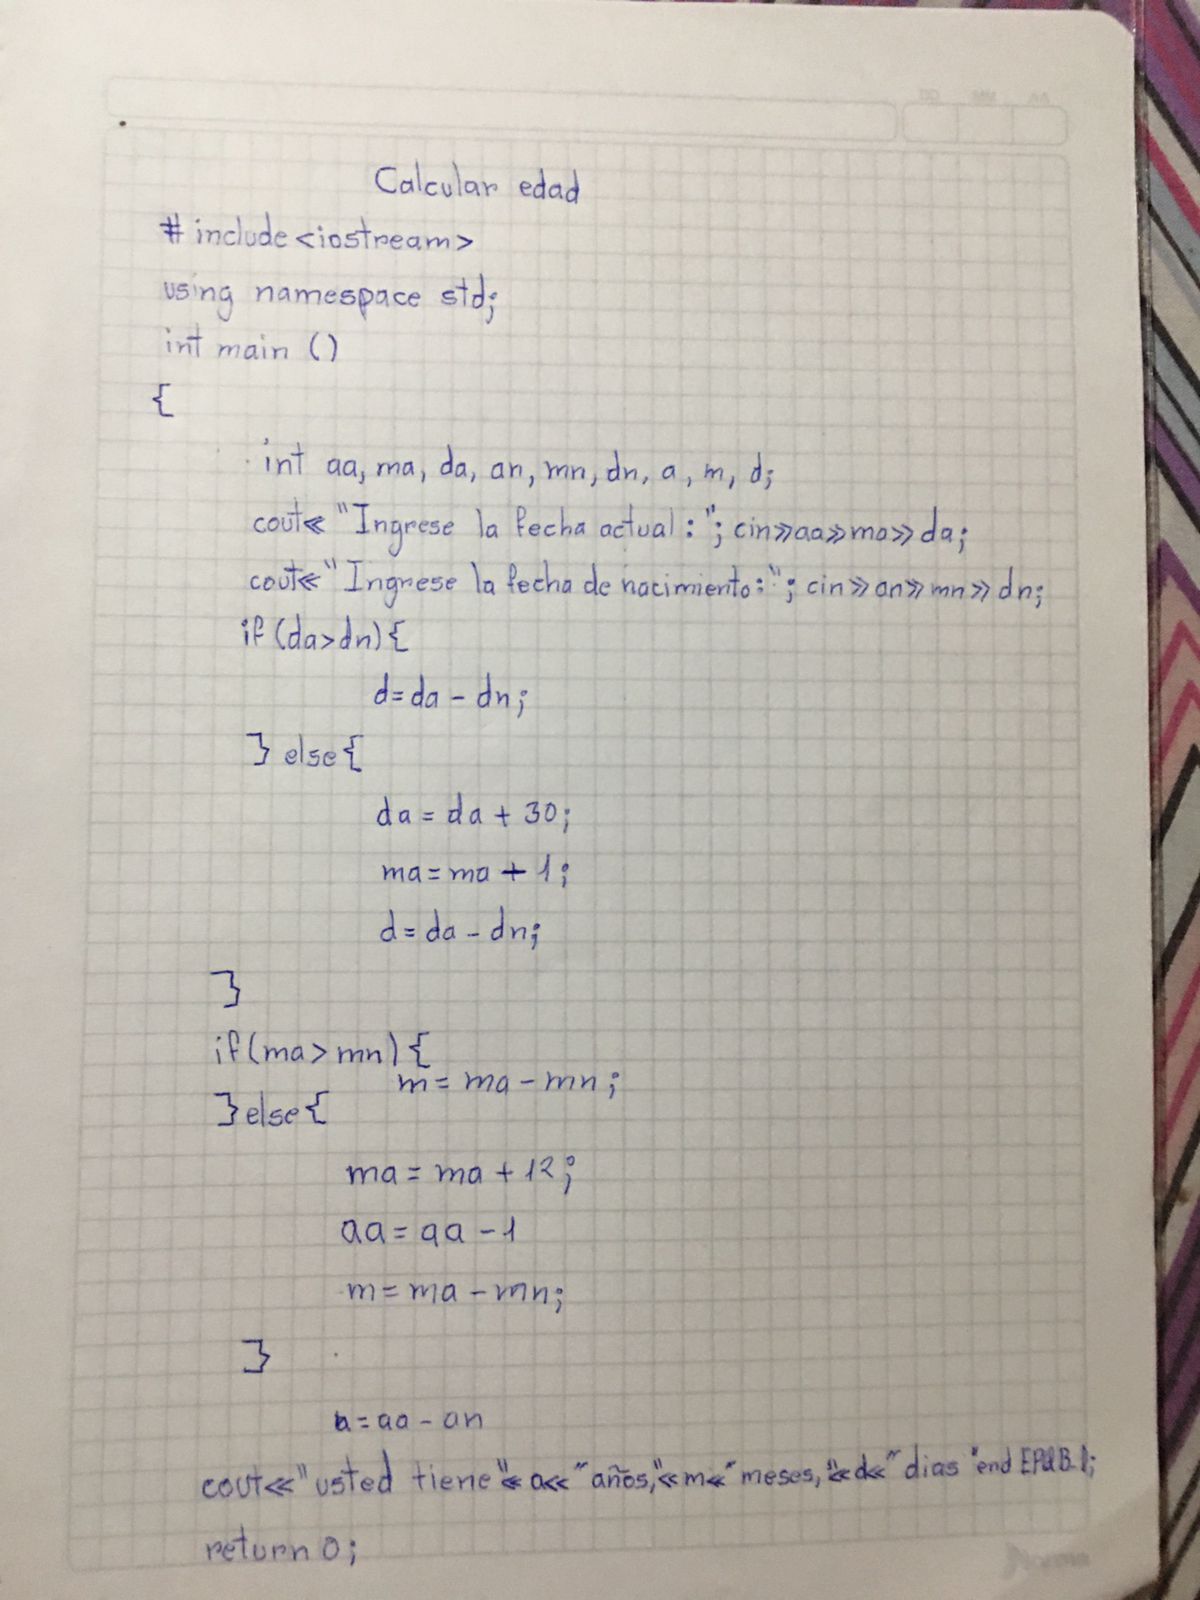 Calcular edad
# include <iostream>
using namespace std;
int main ()
{
int aa, ma, da, an, mn, dn, a, m, d;
cout<< "Ingrese la fecha actual : "; cin>>aa>>ma>>da;
cout<< "Ingrese la fecha de nacimiento: "; cin>>an>>mn>>dn;
if (da>dn) {
d=da - dn;
} else {
da = da + 30;
ma = ma + 1;
d = da - dn;
}
if (ma > mn) {
m = ma - mn;
} else {
ma = ma + 12;
aa = aa - 1
m = ma - mn;
}
a = aa - an
cout<< "usted tiene"<< a<< "años,"<<m<< "meses, "<<d<< "dias "end
return 0;
Norma